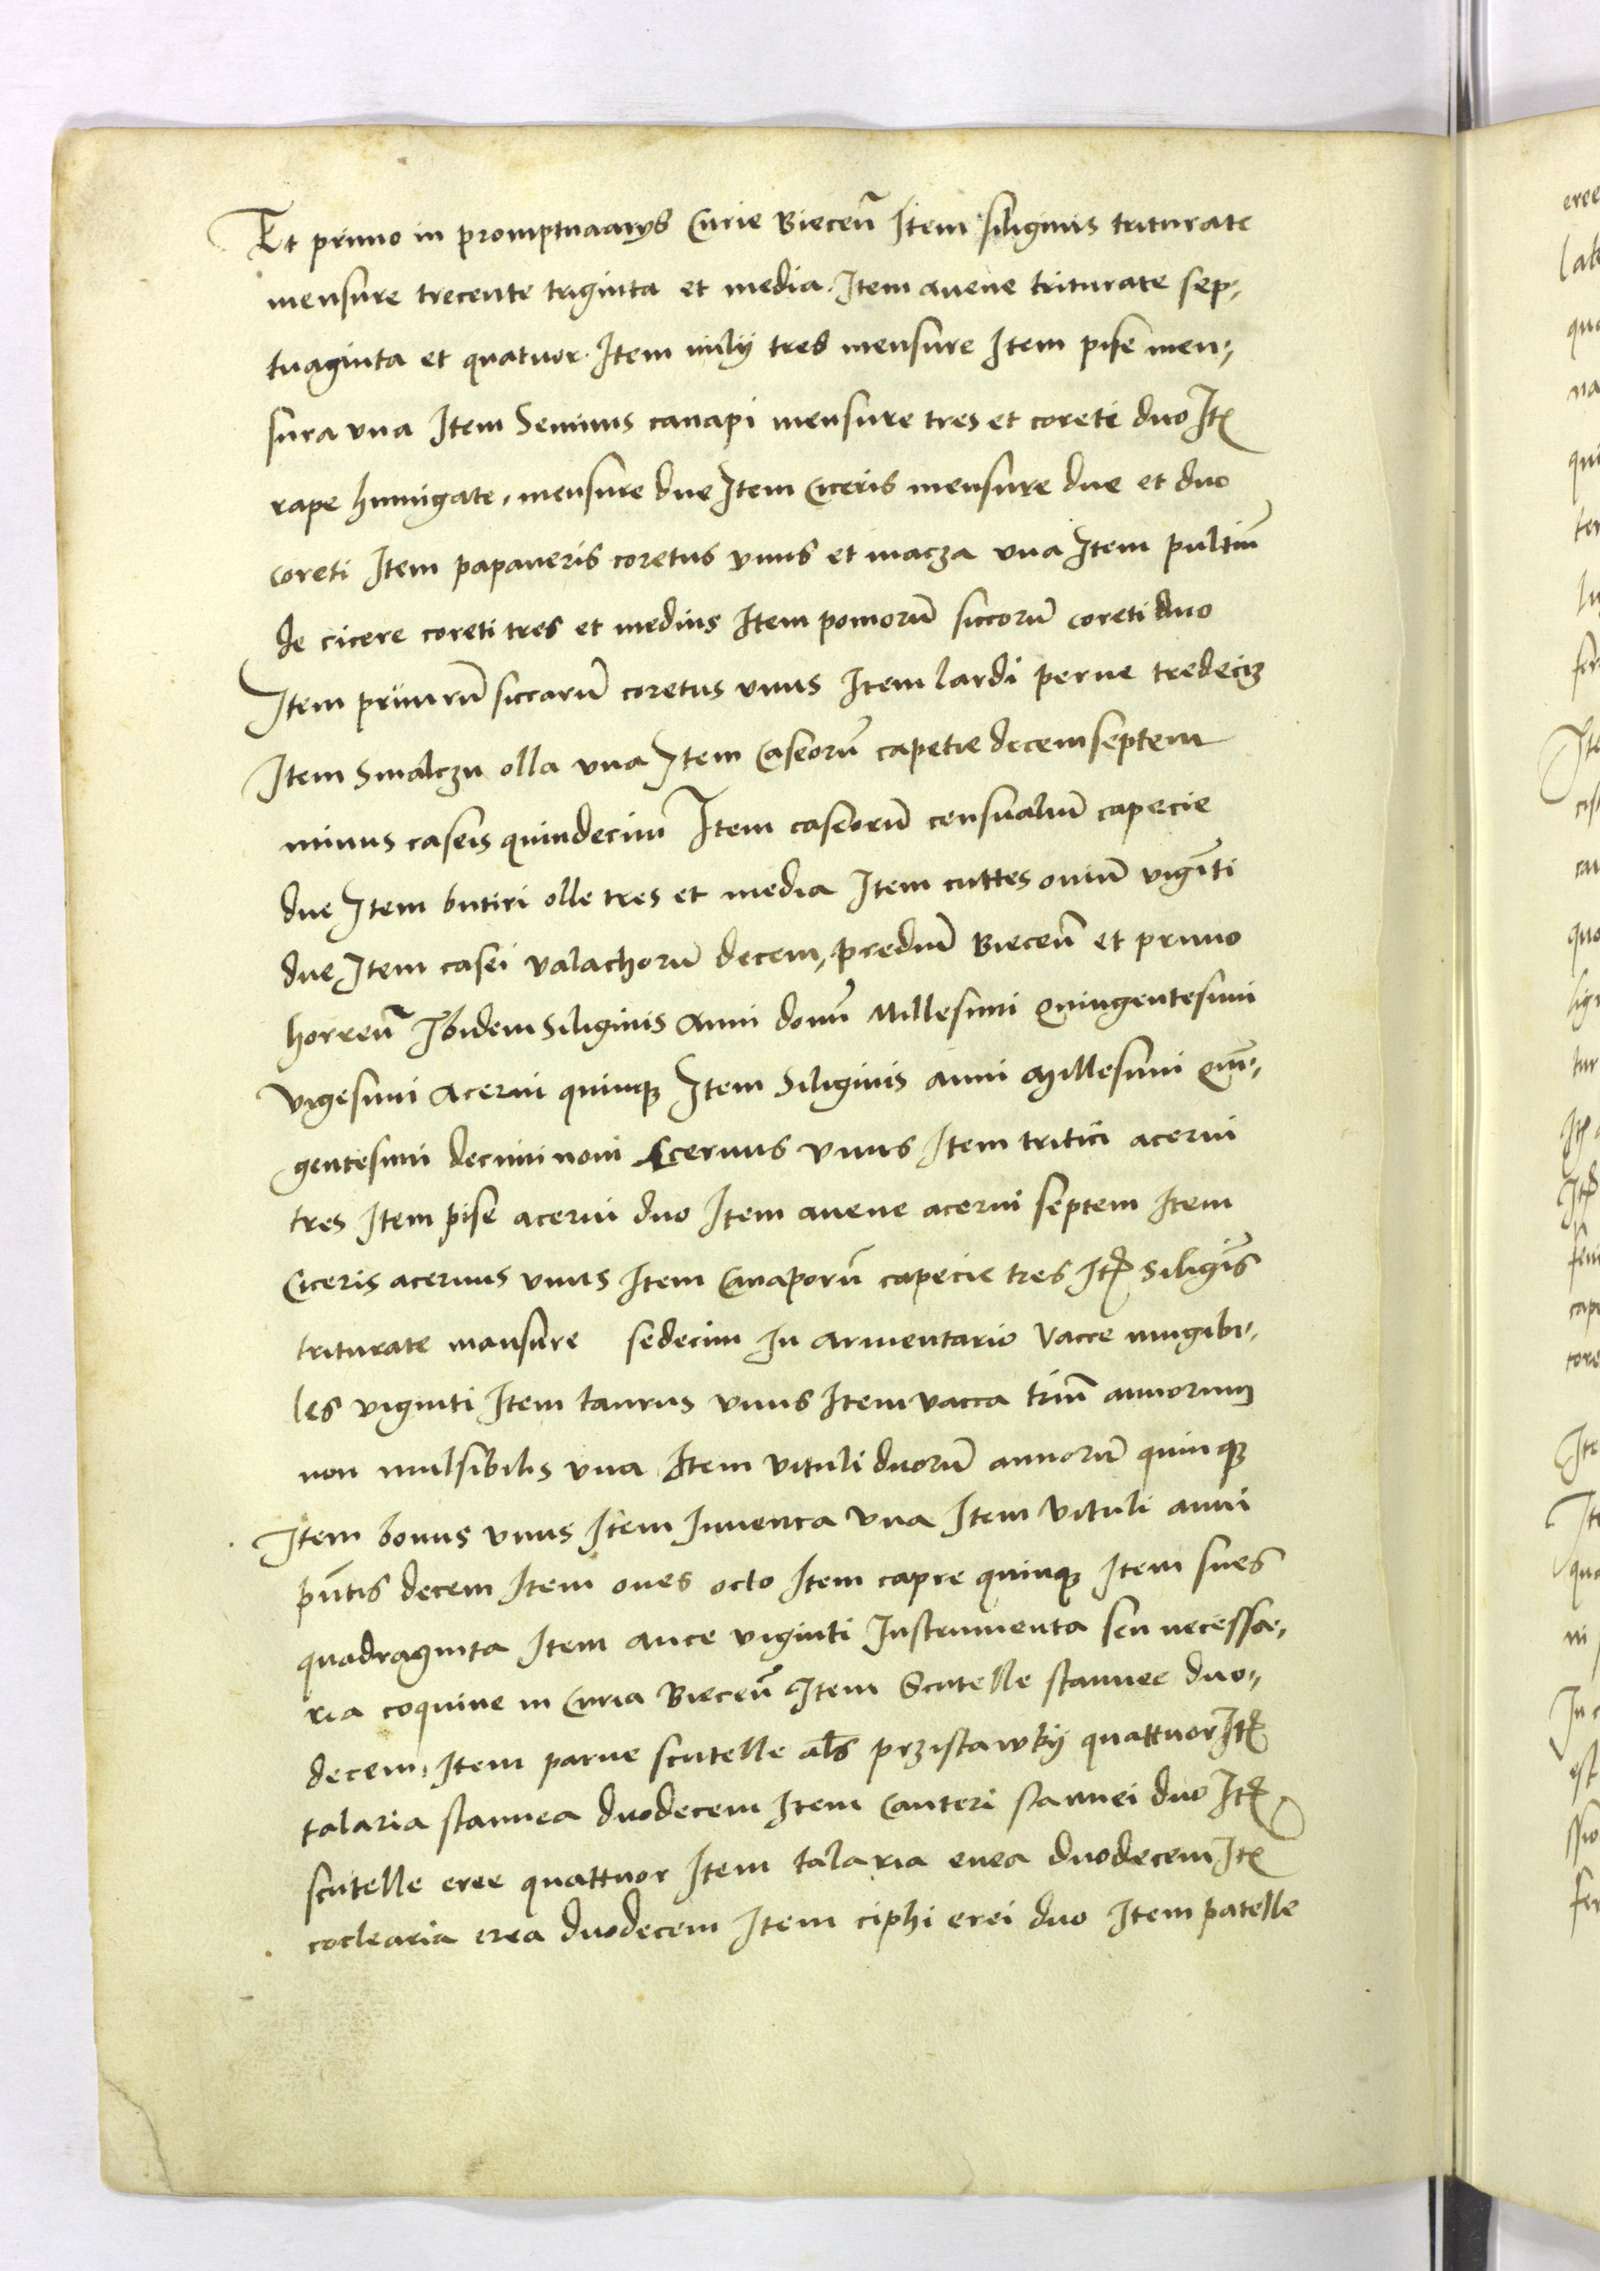 Et primo in promptuaarys Curie Bieceñ Item siliginis triturate
mensure trecente triginta et media. Item auene triturate sep-
tuaginta et quatuor. Item milij tres mensure Item pise men-
sura vna Item Seminis canapi mensure tres et coreti duo Itꝫ
rape humigate, mensure due Item Ciceris mensure due et duo
coreti Item papaueris coretus vnus et macza vna Item pultiũ
de cicere coreti tres et medius Item pomorũ siccorũ coreti duo
Item prunrũ siccarũ coretus vnus Item lardi perne tredeciꝫ
Item Smalczu olla vna Item Caseorũ capetie decemseptem
minus caseis quindecim Item caseorũ censualiũ capecie
due Item butiri olle tres et media Item cuttes ouiũ vigĩti
due Item casei valachorũ decem, prediũ Bieceñ et primo
horreũ Ibidem Siliginis Anni domĩ Millesimi Quingentesimi
vigesimi Acerui quinqꝫ Item Siliginis anni Millesimi Quĩ-
gentesimi decimi noni Aceruus vnus Item tritici acerui
tres Item pise acerui duo Item auene acerui septem Item
Ciceris aceruus vnus Item Canaporũ capecie tres Itꝫ siligĩs
triturate mansure sedecim In armentario Vacce mugibi-
les viginti Item taurus vnus Item vacca triũ annorum
non mulsibilis vna Item vituli duorũ annorũ quinqꝫ
Item bouus vnus Item Iuuenca vna Item vituli anni
pñtis decem Item oues octo Item capre quinqꝫ Item sues
quadraginta Item auce viginti Instrumenta seu necessa-
ria coquine in Curia Bieceñ Item Scutelle stannee duo-
decem, Item parue scutelle als̃ przistawky quattuor Itꝫ
talaria stannea duodecem Item Canteri stannei duo Itꝫ
scutelle eree quattuor Item talaria enea duodecem Itꝫ
coclearia erea duodecem Item ciphi erei duo Item patelle